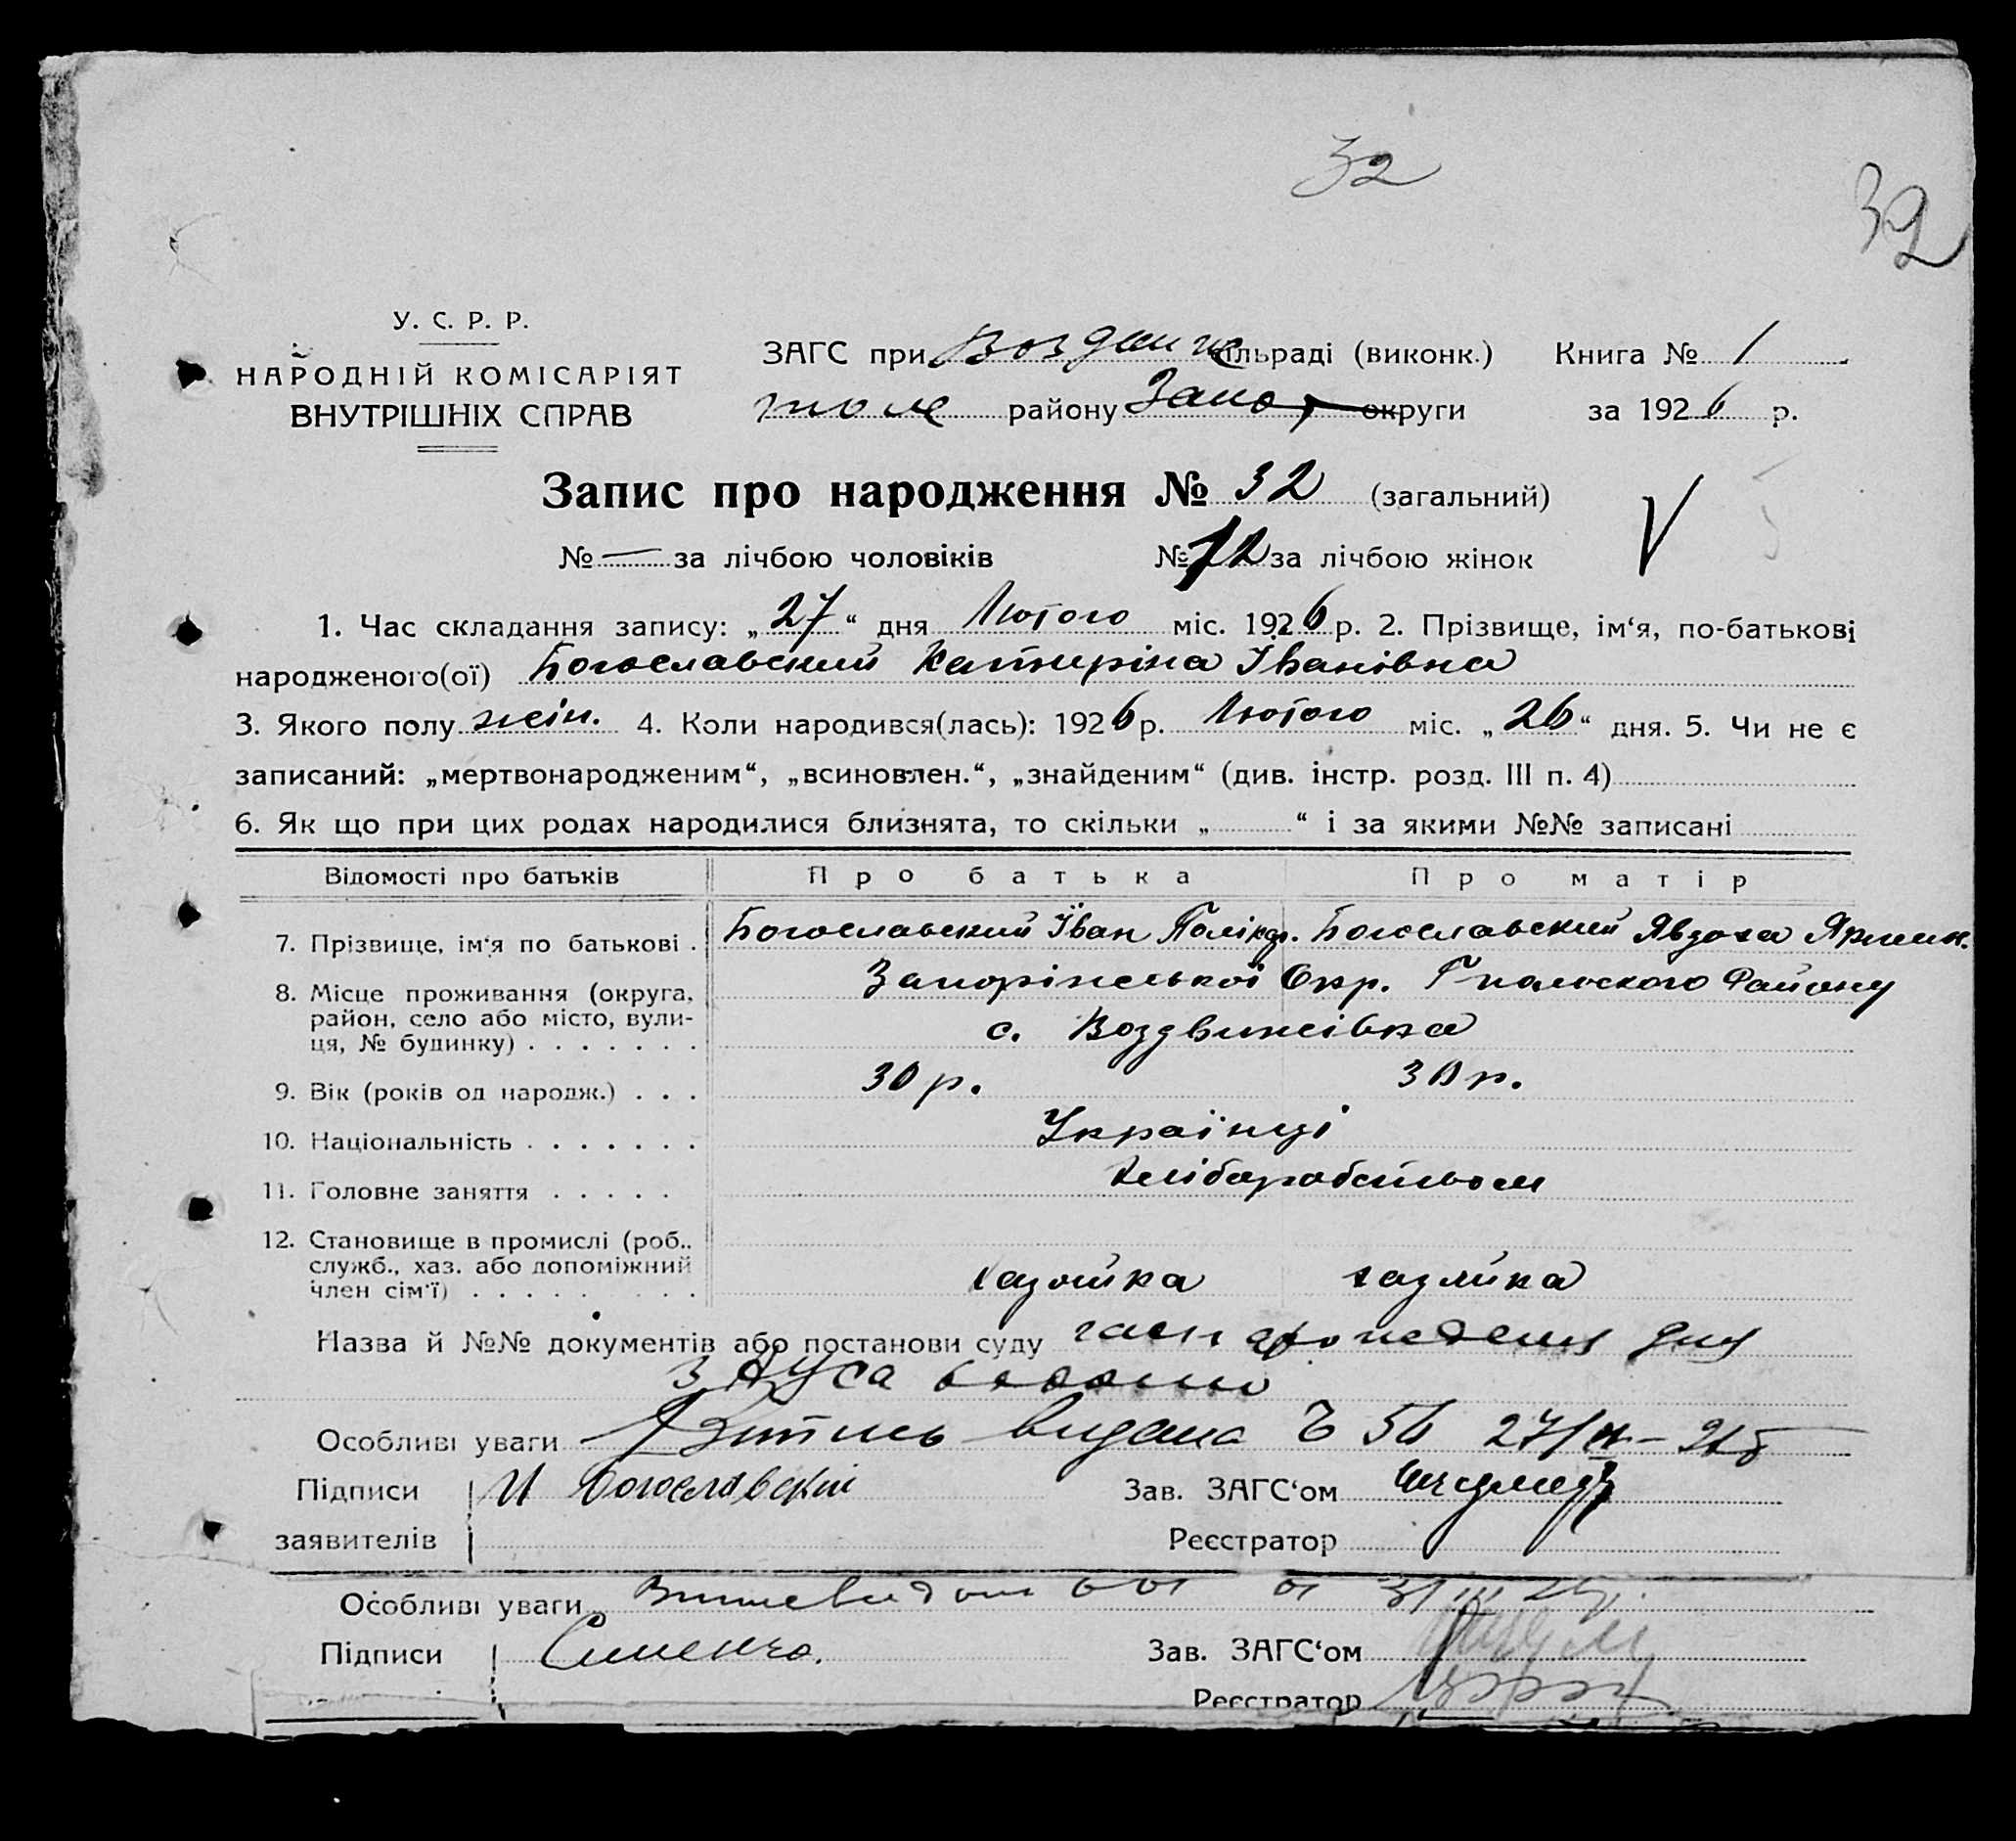 32
32
У. С. Р. Р.
НАРОДНІЙ КОМІСАРІЯТ
ВНУТРІШНІХ СПРАВ
ЗАГС при Воздвиж сільраді (виконк.) Книга № 1
району Запор округи за 1926 р.
Запис про народження № 32 (загальний)
№ — за лічбою чоловіків № 12 за лічбою жінок
1. Час складання запису: „27“ дня Лютого міс. 1926 р. 2. Прізвище, ім‘я, по-батькові
народженого(ої) Богославский Катиріна Іванівна
3. Якого полу жін. 4. Коли народився(лась): 1926 р. Лютого міс. „26“ дня. 5. Чи не є
записаний: „мертвонародженим“, „всиновлен.“, „знайденим“ (див. інстр. розд. III п. 4)
6. Як що при цих родах народилися близнята, то скільки „ “ і за якими №№ записані
Відомості про батьків Про батька Про матір
7. Прізвище, ім‘я по батькові . Богославский Іван Полікар. Богославский Явдоха
8. Місце проживання (округа, район, село або місто, вулиця, № будинку) . . . . . . . Запоріжської Окр. Району
с. Воздвижівка
9. Вік (років од народж.) . . . 30 р. 30 р.
10. Національність . . . . . . . Українці
11. Головне заняття . . . . . Хліборобством
12. Становище в промислі (роб., служб., хаз. або допоміжний член сім‘ї) . . . . . . . . хазяйка хазяйка
Назва й №№ документів або постанови суду
Особливі уваги Витпись видана 56
Підписи И Богославский Зав. ЗАГС‘ом
заявителів Реєстратор
Особливі уваги
Підписи Зав. ЗАГС‘ом
Реєстратор